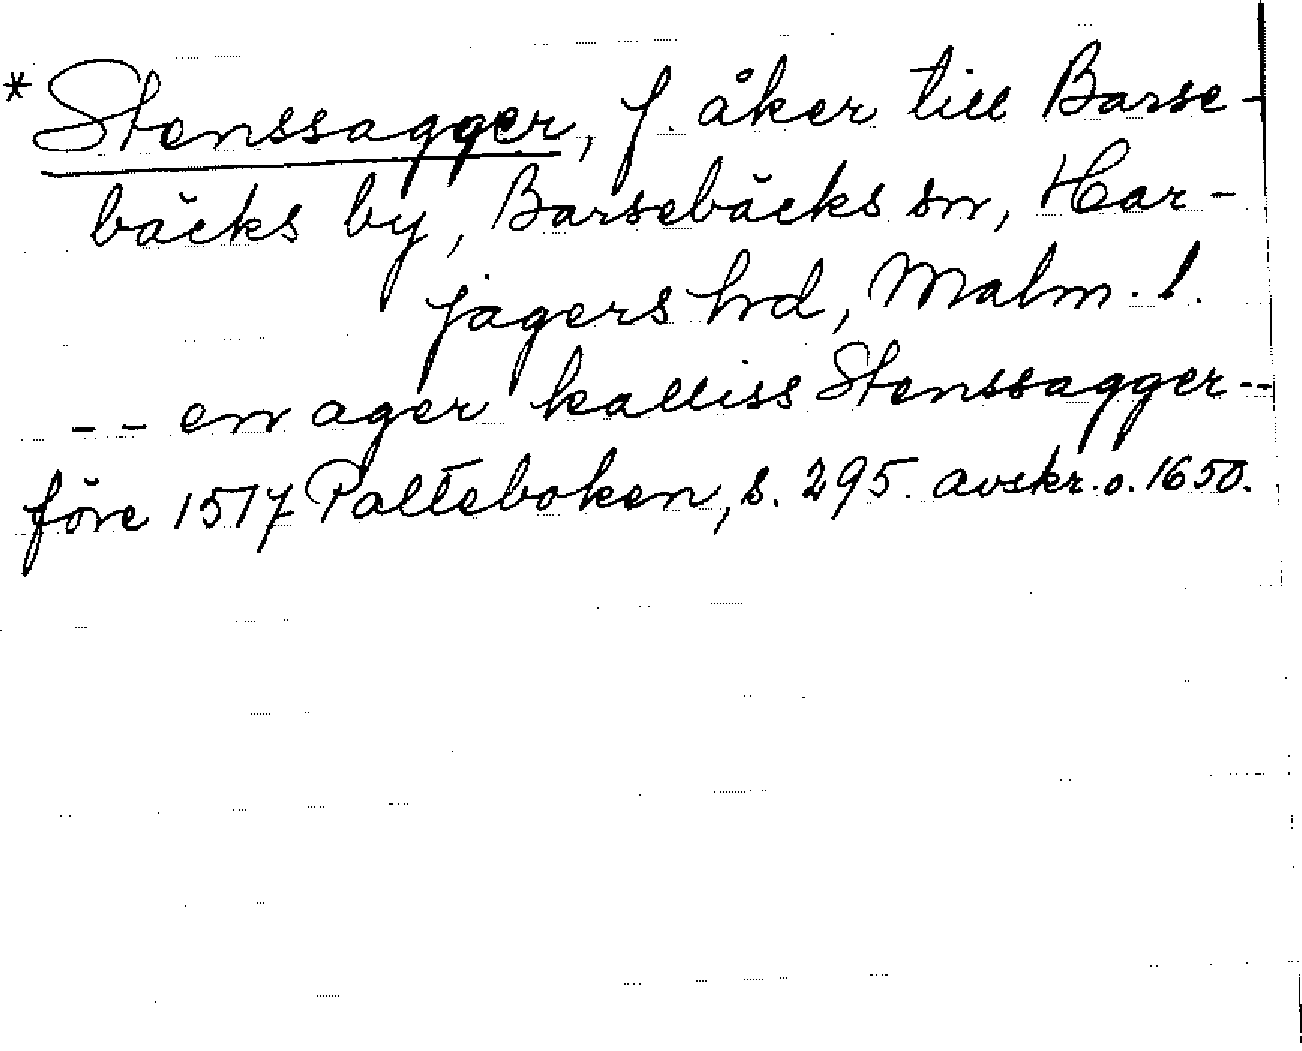 * Stenssagger, f. åker till Barse-
bäcks by, Barsebäcks sn, Har-
jagers hrd, Malm. l.
-- en ager kalliss Stenssagger--
före 1517 Palteboken, s. 295. avskr. o. 1650.